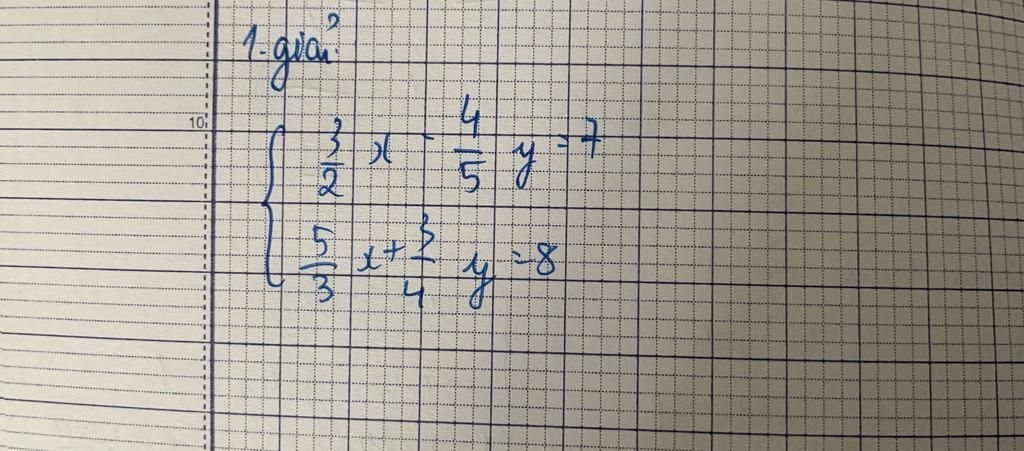 10
1. giải
3/2 x - 4/5 y = 7
5/3 x + 3/4 y = 8